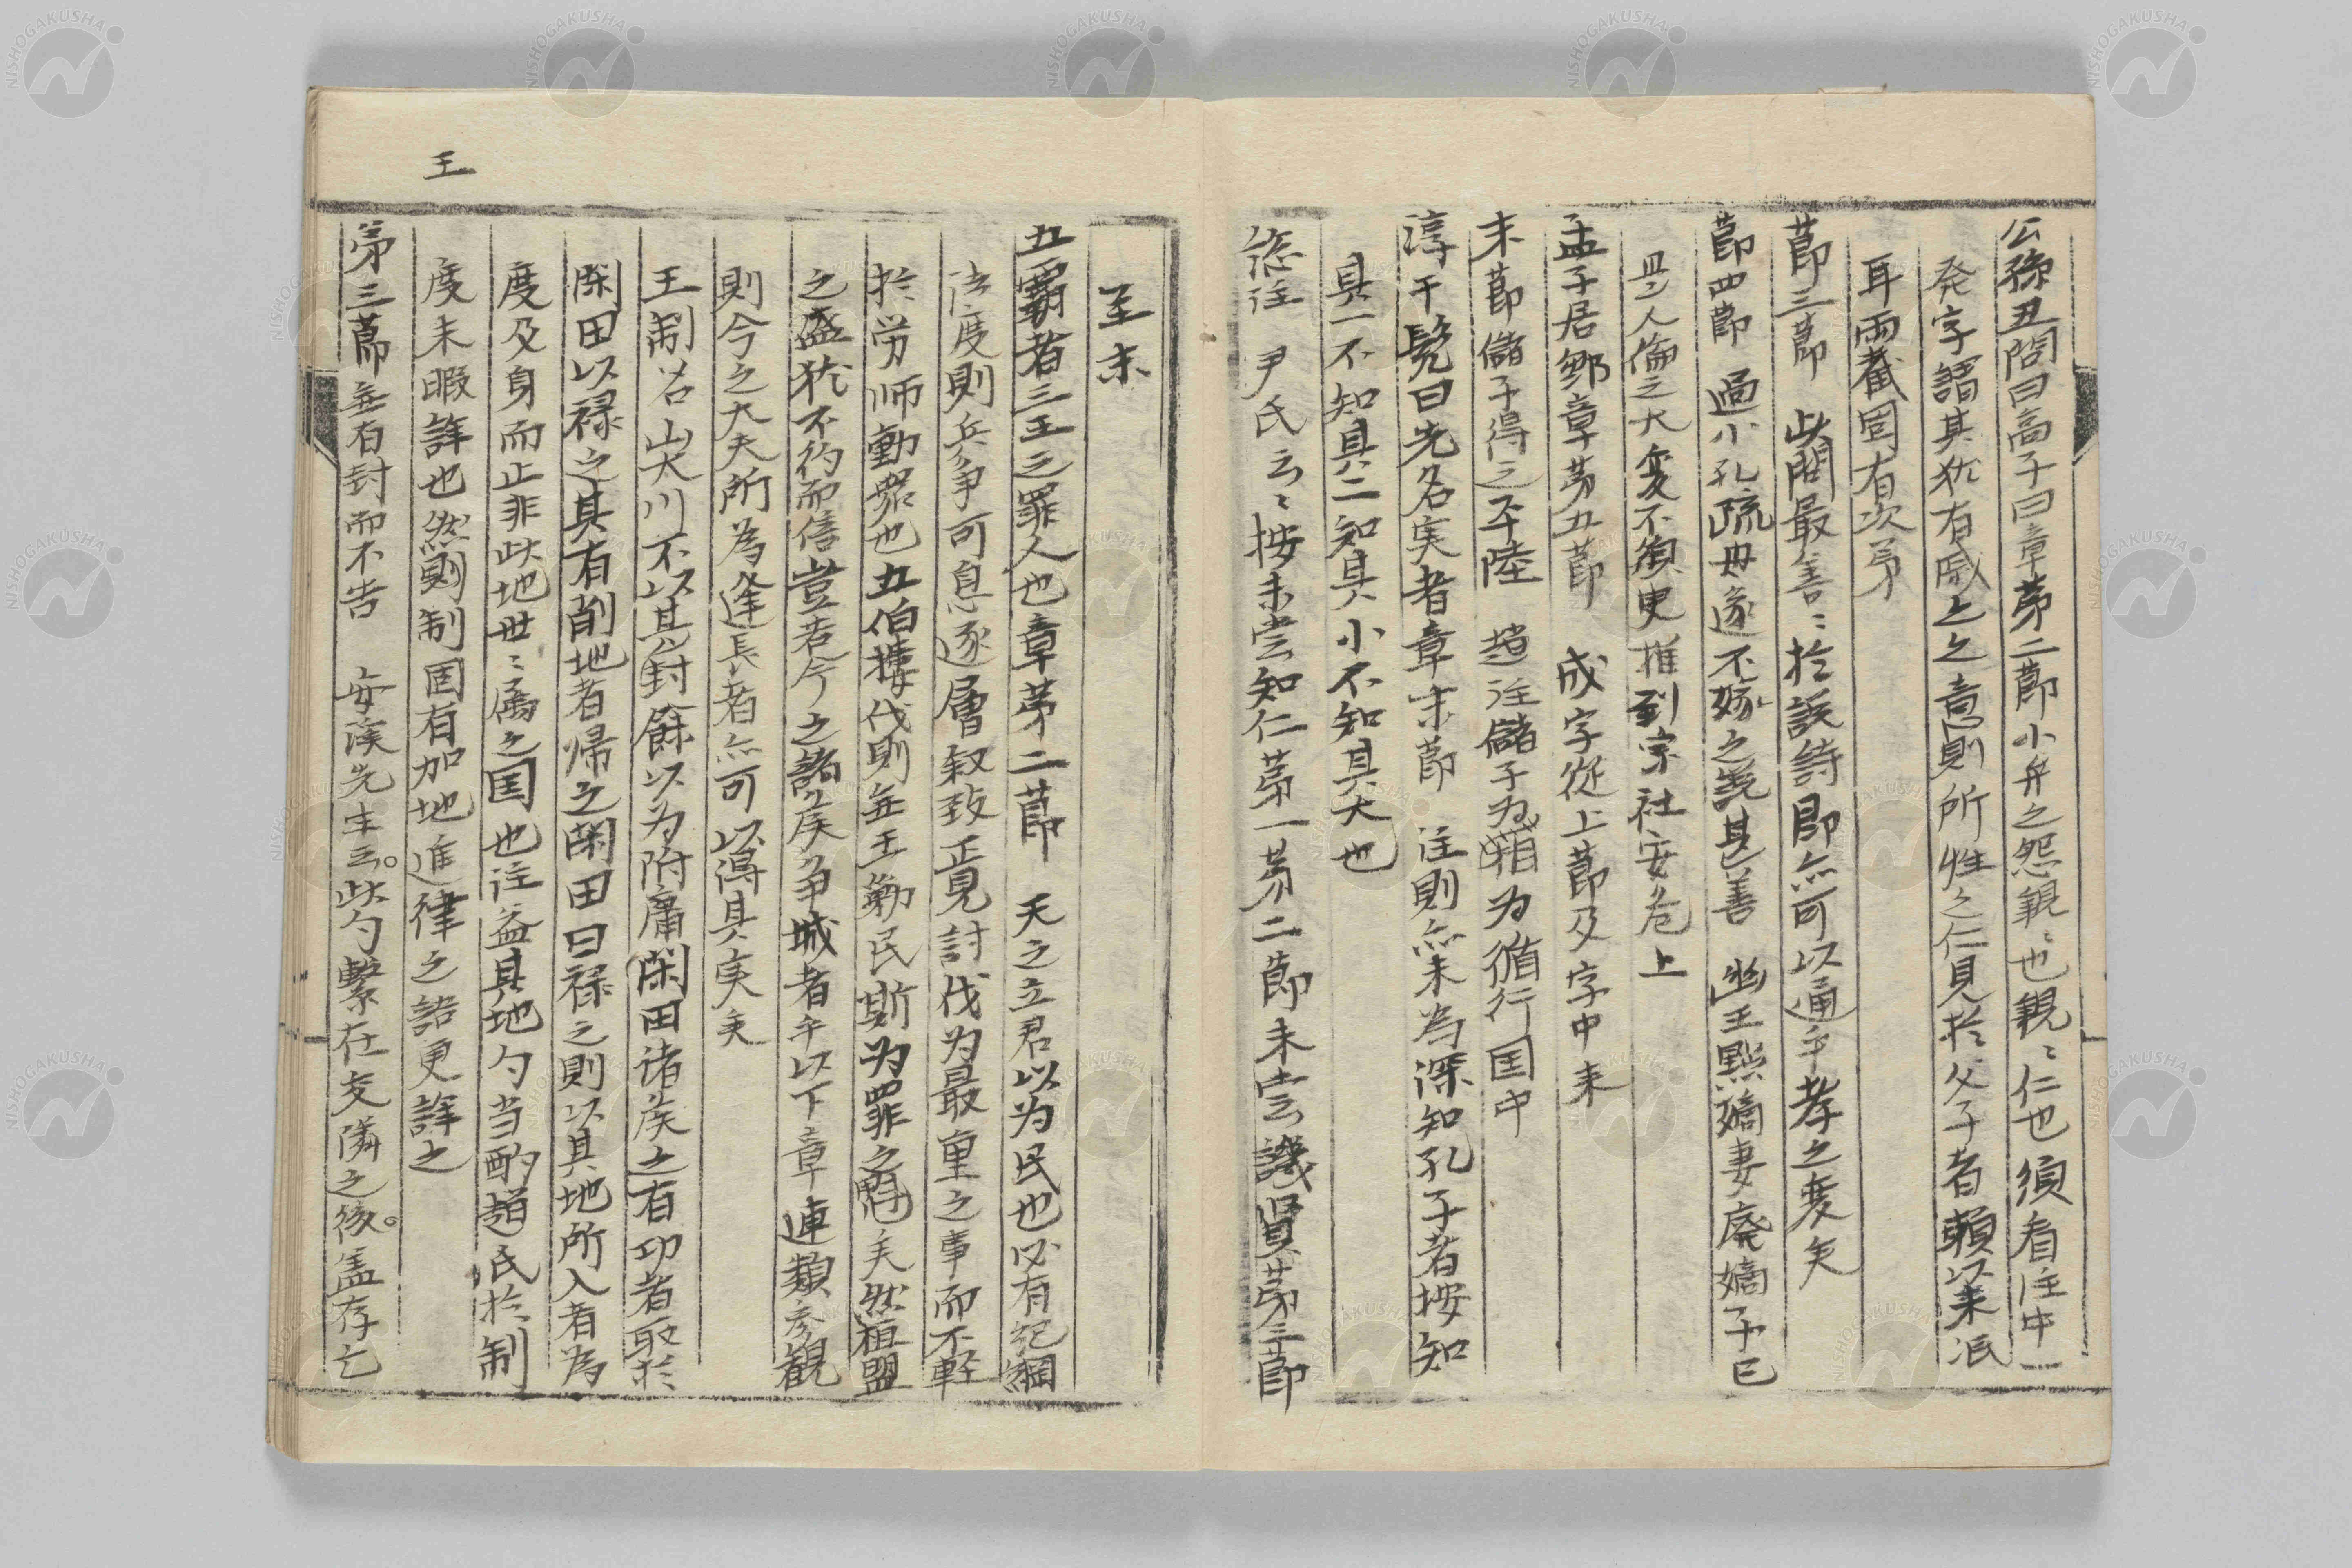 公孫丑問曰高子曰章第二節小弁之怨親々也親々仁也須看注中一
発字謂其犹有戚之之意則所性之仁見於父子者頼以未泯
耳両截固有次第
節三節 此問最善々於説詩即亦可以通乎孝之変矣
節四節 過小孔疏毋遂不嫁之説甚善 幽王黜嫡妻廃嫡子已
是人倫之大変不須更推到宗社安危上
孟子居鄒章第五節 成字従上節及字中来
末節儲子得之平陸 趙注儲子为相为循行国中
淳于髡曰先名実者章末節 注則亦未為深知孔子者按知
其一不知其二知其小不知其大也
慾注 尹氏云々按未嘗知仁第一第二節未嘗識賢第三節
至末
五霸者三王之罪人也章第二節 天之立君以为民也必有紀綱
法度則兵争可息逐層叙致正見討伐为最重之事而不軽
於労師動衆也五伯摟伐則無王勦民斯为罪之魁矣然桓盟
之盛犹不約而信豈若今之諸侯争城者乎以下章連類参観
則今之大夫所為逢長者亦可以得其実矣
王制名山大川不以其封餘以为附庸閑田诸侯之有功者取於
閑田以禄之其有削地者帰之閑田曰禄之則以其地所入者為
度及身而止非此地世々属之国也注益其地勺当酌趙氏於制
度未暇詳也然則制固有加地進律之語更詳之
第三節無有封而不告 安溪先生云。此勺繫在交隣之後。盖存亡
王